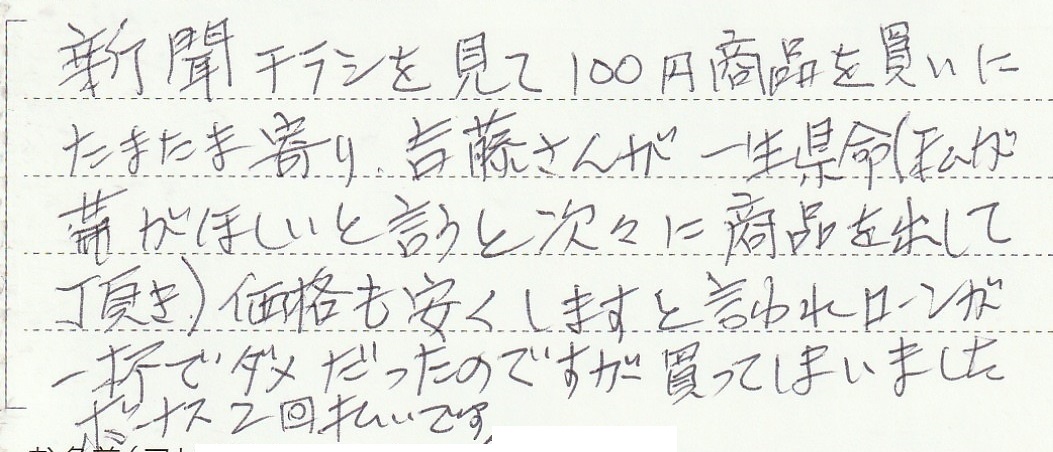 新聞チラシを見て100円商品を買いに
たまたま寄り、吉藤さんが一生県命(私が
帯がほしいと言うと次々に商品を出して
頂き)価格も安くしますと言われローンが
一杯でダメだったのですが買ってしまいました
ボーナス2回払いです